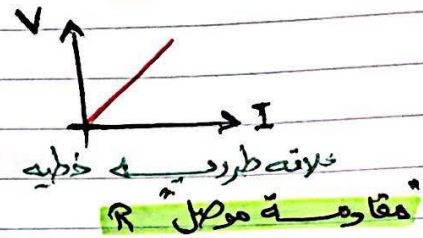 V
I
علاقه طرديه خطيه
"مقاومة موصل" R